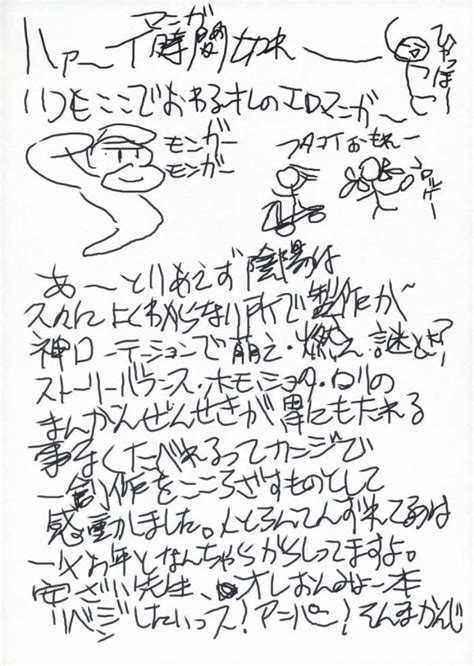 マンガ
ハァーイ時間切れ〜
ひゃっほー
いつもここでおわるオレのエロマンガ〜
モンガー
モンガー
フタコイおもれー
あーとりあえず陰陽は
久々によくわからない所で製作が
神ローテーションで萌え・燃え・謎とき?
ストーリーバランス・ホモ・ショタ・ロリの
まんかんぜんせきが胃にもたれる
事なくたべれるってカンジで
一創作をこころざすものとして
感動しました。
一
お年となんちゃらからしってますよ。
安ざい先生、オレおんみょ一本
リベンジしたいっス!アニパー!そんなかんじ